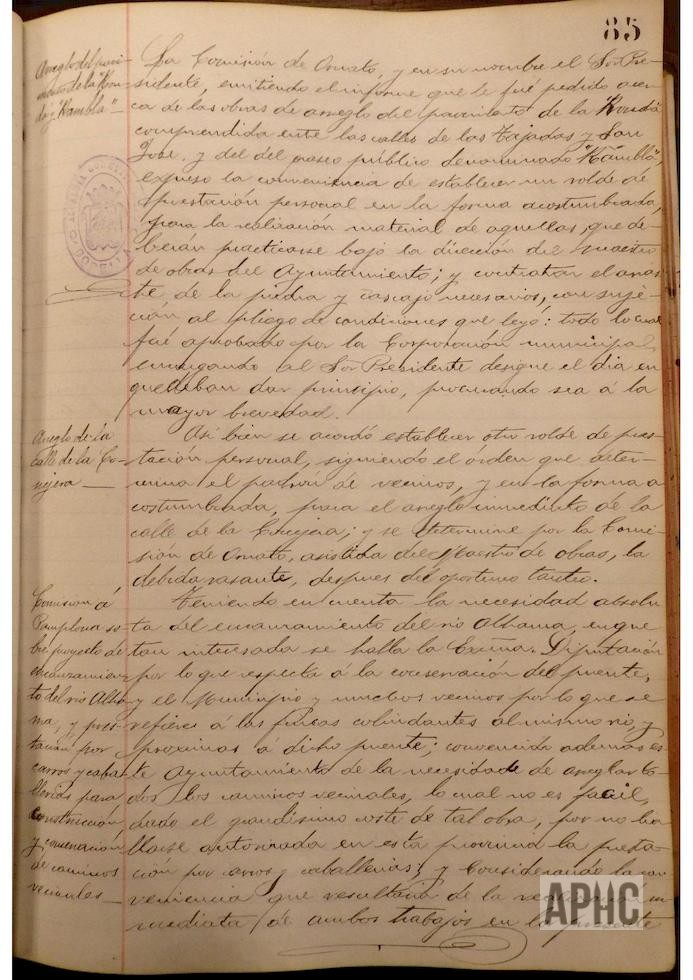 85
Arreglo del pavi-
mento de la "Ron-
da" y "Rambla"
La Comisión de Ornato, y en su nombre el Sor Pre-
sidente, emitiendo el informe que le fué pedido acer-
ca de las obras de arreglo del pavimento de la Ronda
comprendida ente las calles de las Tajadas y San
José, y del del paseo público denominado "Rambla",
expuso la conveniencia de establecer un rolde de
prestación personal en la forma acostumbrada,
para la realización material de aquellas, que de-
berían practicarse bajo la dirección del maestro
de obras del Ayuntamiento; y contratar el arras-
te, de la piedra y cascajo necesarios, con suje-
ción al pliego de condiciones que leyó: todo lo cual
fué aprobado por la Corporación municipal
encargando al Sor Presidente designe el dia en
que deban dar principio, procurando sea á la
mayor brevedad.
Arreglo de la
calle de la Co-
nejera
Asi bien se acordó establecer otro rolde de pres-
tación personal, siguiendo el órden que deter-
mina el padrón de vecinos, y en la forma a
costumbrada, para el arreglo inmediato de la
calle de la Conejera; y se determine por la Comi-
sion de Ornato, asistida del Maestro de obras, la
debida rasante, despues del oportuno tanteo.
Comision á
Pamplona so-
bre proyecto de
encauzamien-
to del rio Alha-
ma, y pres-
tación por
carros y caba-
llerias para
construcción
y conservación
de caminos
vecinales
Teniendo en cuenta la necesidad absolu-
ta del encauzamiento del rio Alhama, en que
tan interesada se halla la Excma. Diputación
por lo que respecta á la conservación del puente,
y el Municipio y muchos vecinos por lo que se
refiere á las fincas colindantes al mismo rio, y
proximas á dicho puente; convencido ademas es-
te Ayuntamiento de la necesidad de arreglar to-
dos los caminos vecinales, lo cual no es facil,
dado el grandisimo coste de tal obra, por no ha
llarse autorizada en esta provincia la presta-
ción por carros y caballerias; y Considerando la con
veniencia que resultaria de la realización in
mediata de ambos trabajos en la presente
APHC